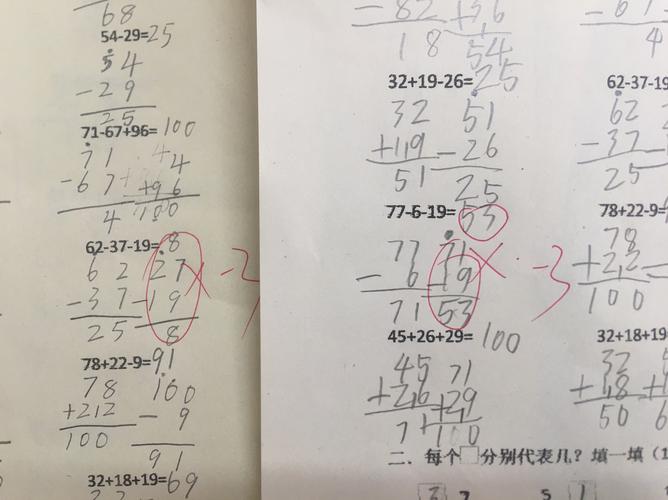 68
54-29=25
54
-29
25
71-67+96=100
71 4
-67 +96
4 100
62-37-19=8
62 27
-37 -19
25 8
-3
78+22-9=91
78 100
+22 - 9
100 91
32+18+19=69
-82 +36
18 54
32+19-26=25
32 51
+19 -26
51 25
77-6-19=53
77 71
- 6 -19
71 53
-3
45+26+29=100
45 71
+26 +29
71 100
二、每个□分别代表几？填一填（1
3 7 5 1
4
62-37-19
62
-37
25
78+22-9=
78
+22
100
32+18+19
32
+18
50